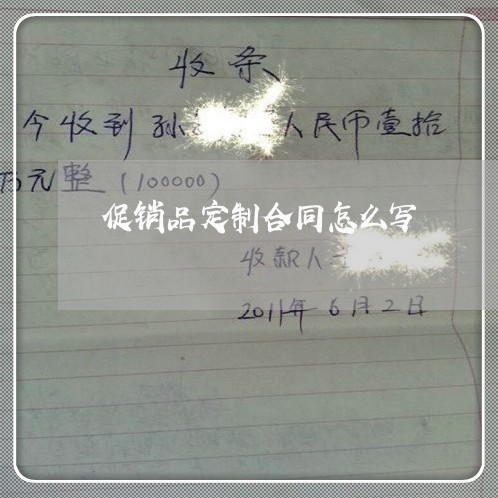 收条
今收到孙 人民币壹拾
万元整(100000)
促销品定制合同怎么写
收款人
2011年6月2日